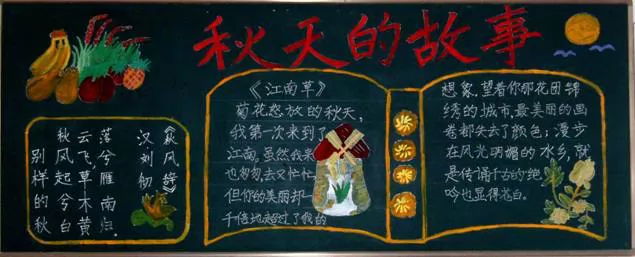 秋天的故事
《秋风辞》
汉刘彻
落兮雁南归。
云飞,草木黄
秋风起兮白
别样的秋
《江南草》
菊花怒放的秋天,
我第一次来到了
江南。虽然我来
也匆匆,去又忙忙
但你的美丽却一
千倍地超过了我的
想象,望着你那花团锦
绣的城市,最美丽的画
卷都失去了颜色;漫步
在风光明媚的水乡,就
是传诵千古的绝
吟也显得苍白。